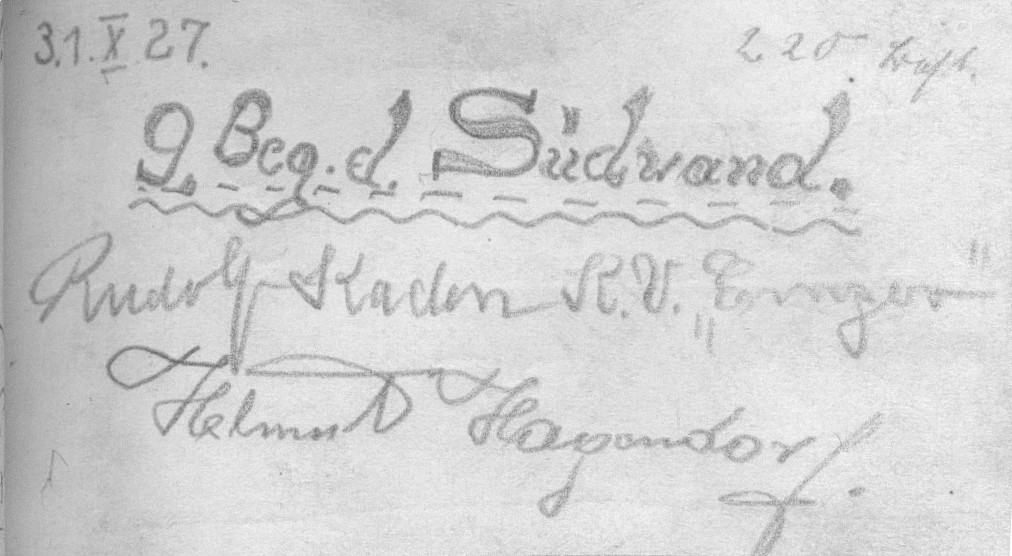 31. X 27.
9. Beg. d. Südwand.
Rudolf Kaden K.V. „
Helmut Hagendorf.